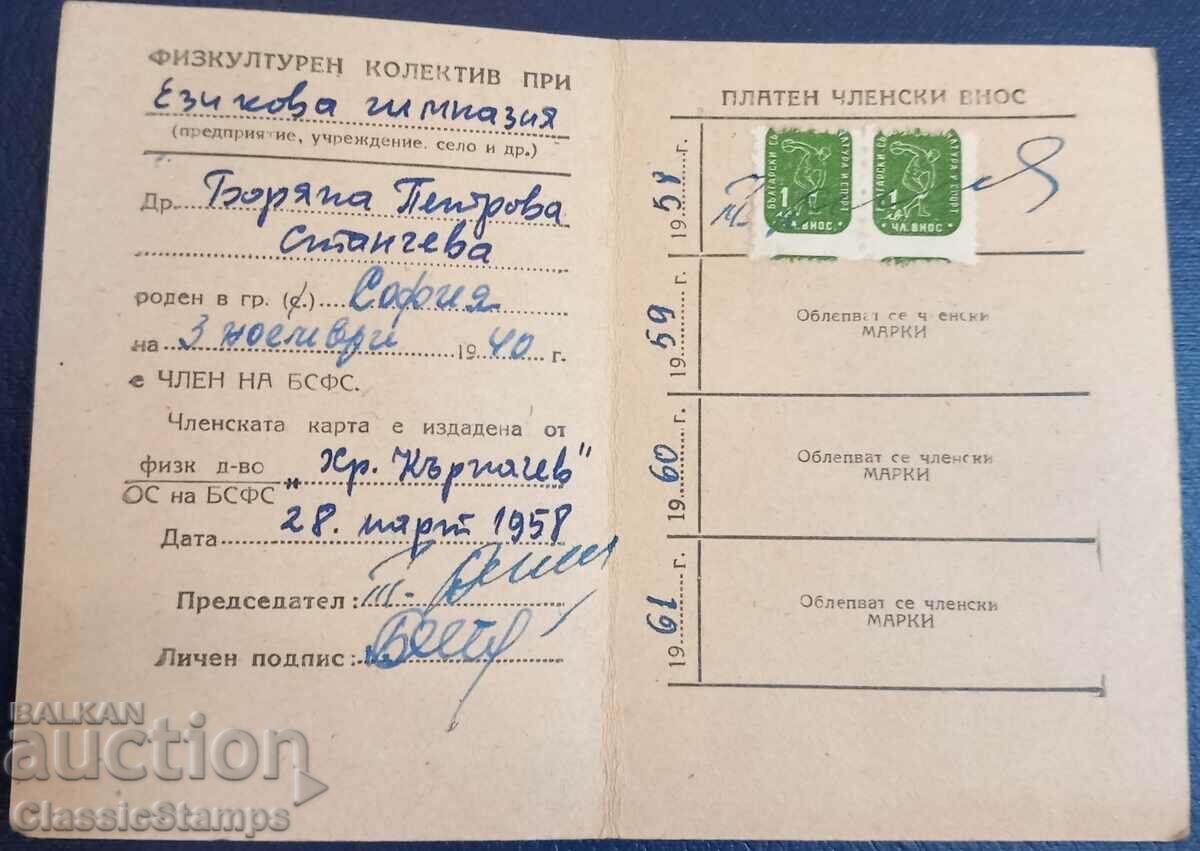 ФИЗКУЛТУРЕН КОЛЕКТИВ ПРИ
Езикова гимназия
(предприятие, учреждение. село и др.)
Др. Боряна Петрова
Станчева
роден в гр. (с.) София
на 3 ноември 1940 г.
е ЧЛЕН НА БСФС.
Членската карта е издадена от
физк д-во „Хр. Кърпачев"
ОС на БСФС
Дата 28. март 1958
Председател:
Личен подпис:
ПЛАТЕН ЧЛЕНСКИ ВНОС
1958 г.
БЪЛГАРСКИ СЪ
1
ЧЛ. ВНОС
АТУРА И СПОРТ
БЪЛГАРСКИ СЪ
1
ЧЛ. ВНОС
АТУРА И СПОРТ
1959 г.
Облепват се членски
МАРКИ
1960 г.
Облепват се членски
МАРКИ
1961 г.
Облепват се членски
МАРКИ
BALKAN
auction
ClassicStamps